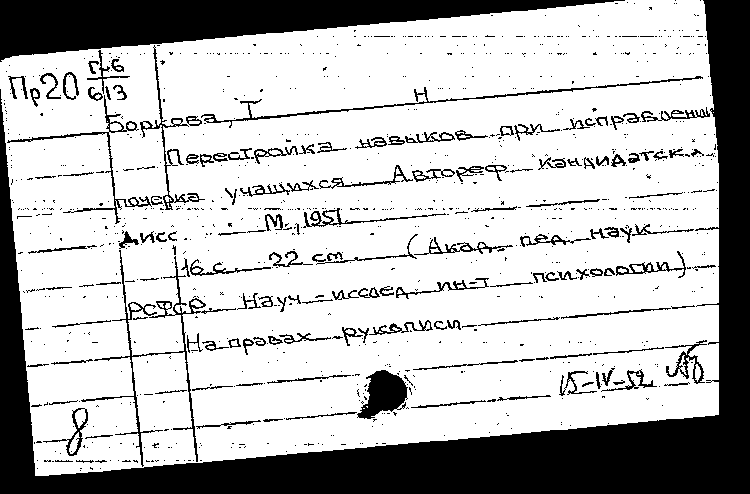 Пр20 Г-6
613
Боркова, Т Н
Перестройка навыков при исправлении
почерка учащихся Автореф кандидатск.
дисс М., 1951.
16 с. 22 cm. (Акад. пед. наук
РСФСР. Науч-исслед. ин-т психологии)
На правах рукописи.
15-IV-52
8